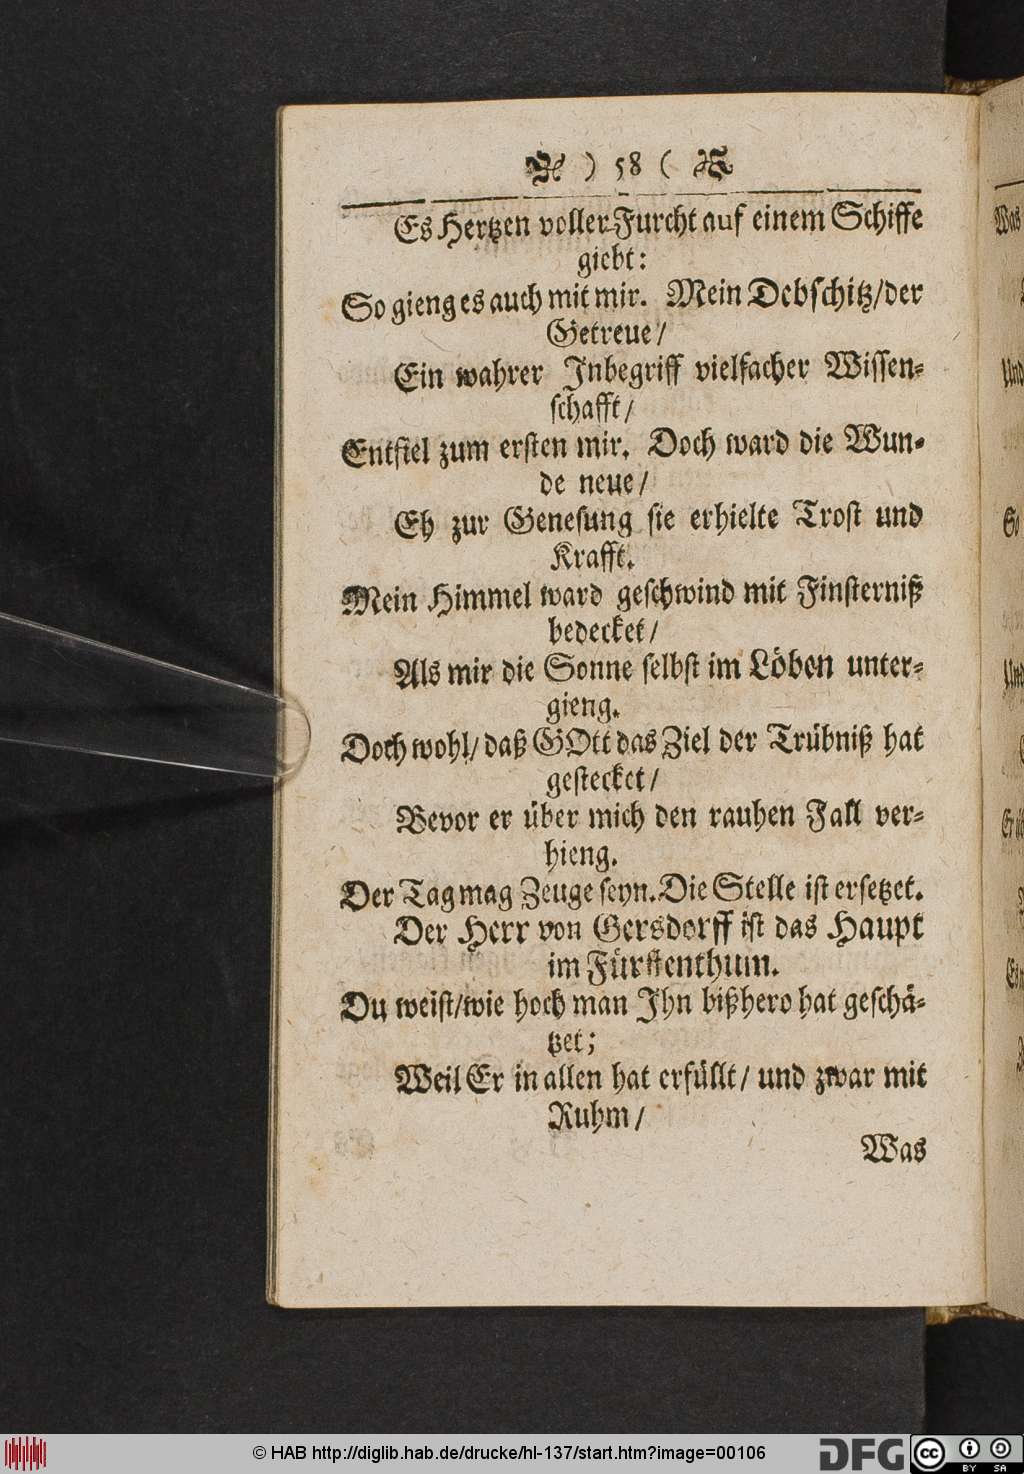 ) 58 (
Es Hertzen voller Furcht auf einem Schiffe
giebt:
So gieng es auch mit mir. Mein Debschitz/der
Getreue/
Ein wahrer Inbegriff vielfacher Wissen-
schafft/
Entfiel zum ersten mir. Doch ward die Wun-
de neue/
Eh zur Genesung sie erhielte Trost und
Krafft.
Mein Himmel ward geschwind mit Finsterniß
bedecket/
Als mir die Sonne selbst im Löben unter-
gieng.
Doch wohl/daß GOtt das Ziel der Trübniß hat
gestecket/
Bevor er über mich den rauhen Fall ver-
hieng.
Der Tag mag Zeuge seyn. Die Stelle ist ersetzet.
Der Herr von Gersdorff ist das Haupt
im Fürstenthum.
Du weist/wie hoch man Ihn bißhero hat geschä-
tzet;
Weil Er in allen hat erfüllt/ und zwar mit
Ruhm/
Was
Was
Und
So
Und
Er
© HAB http://diglib.hab.de/drucke/hl-137/start.htm?image=00106
DFG
cc BY SA